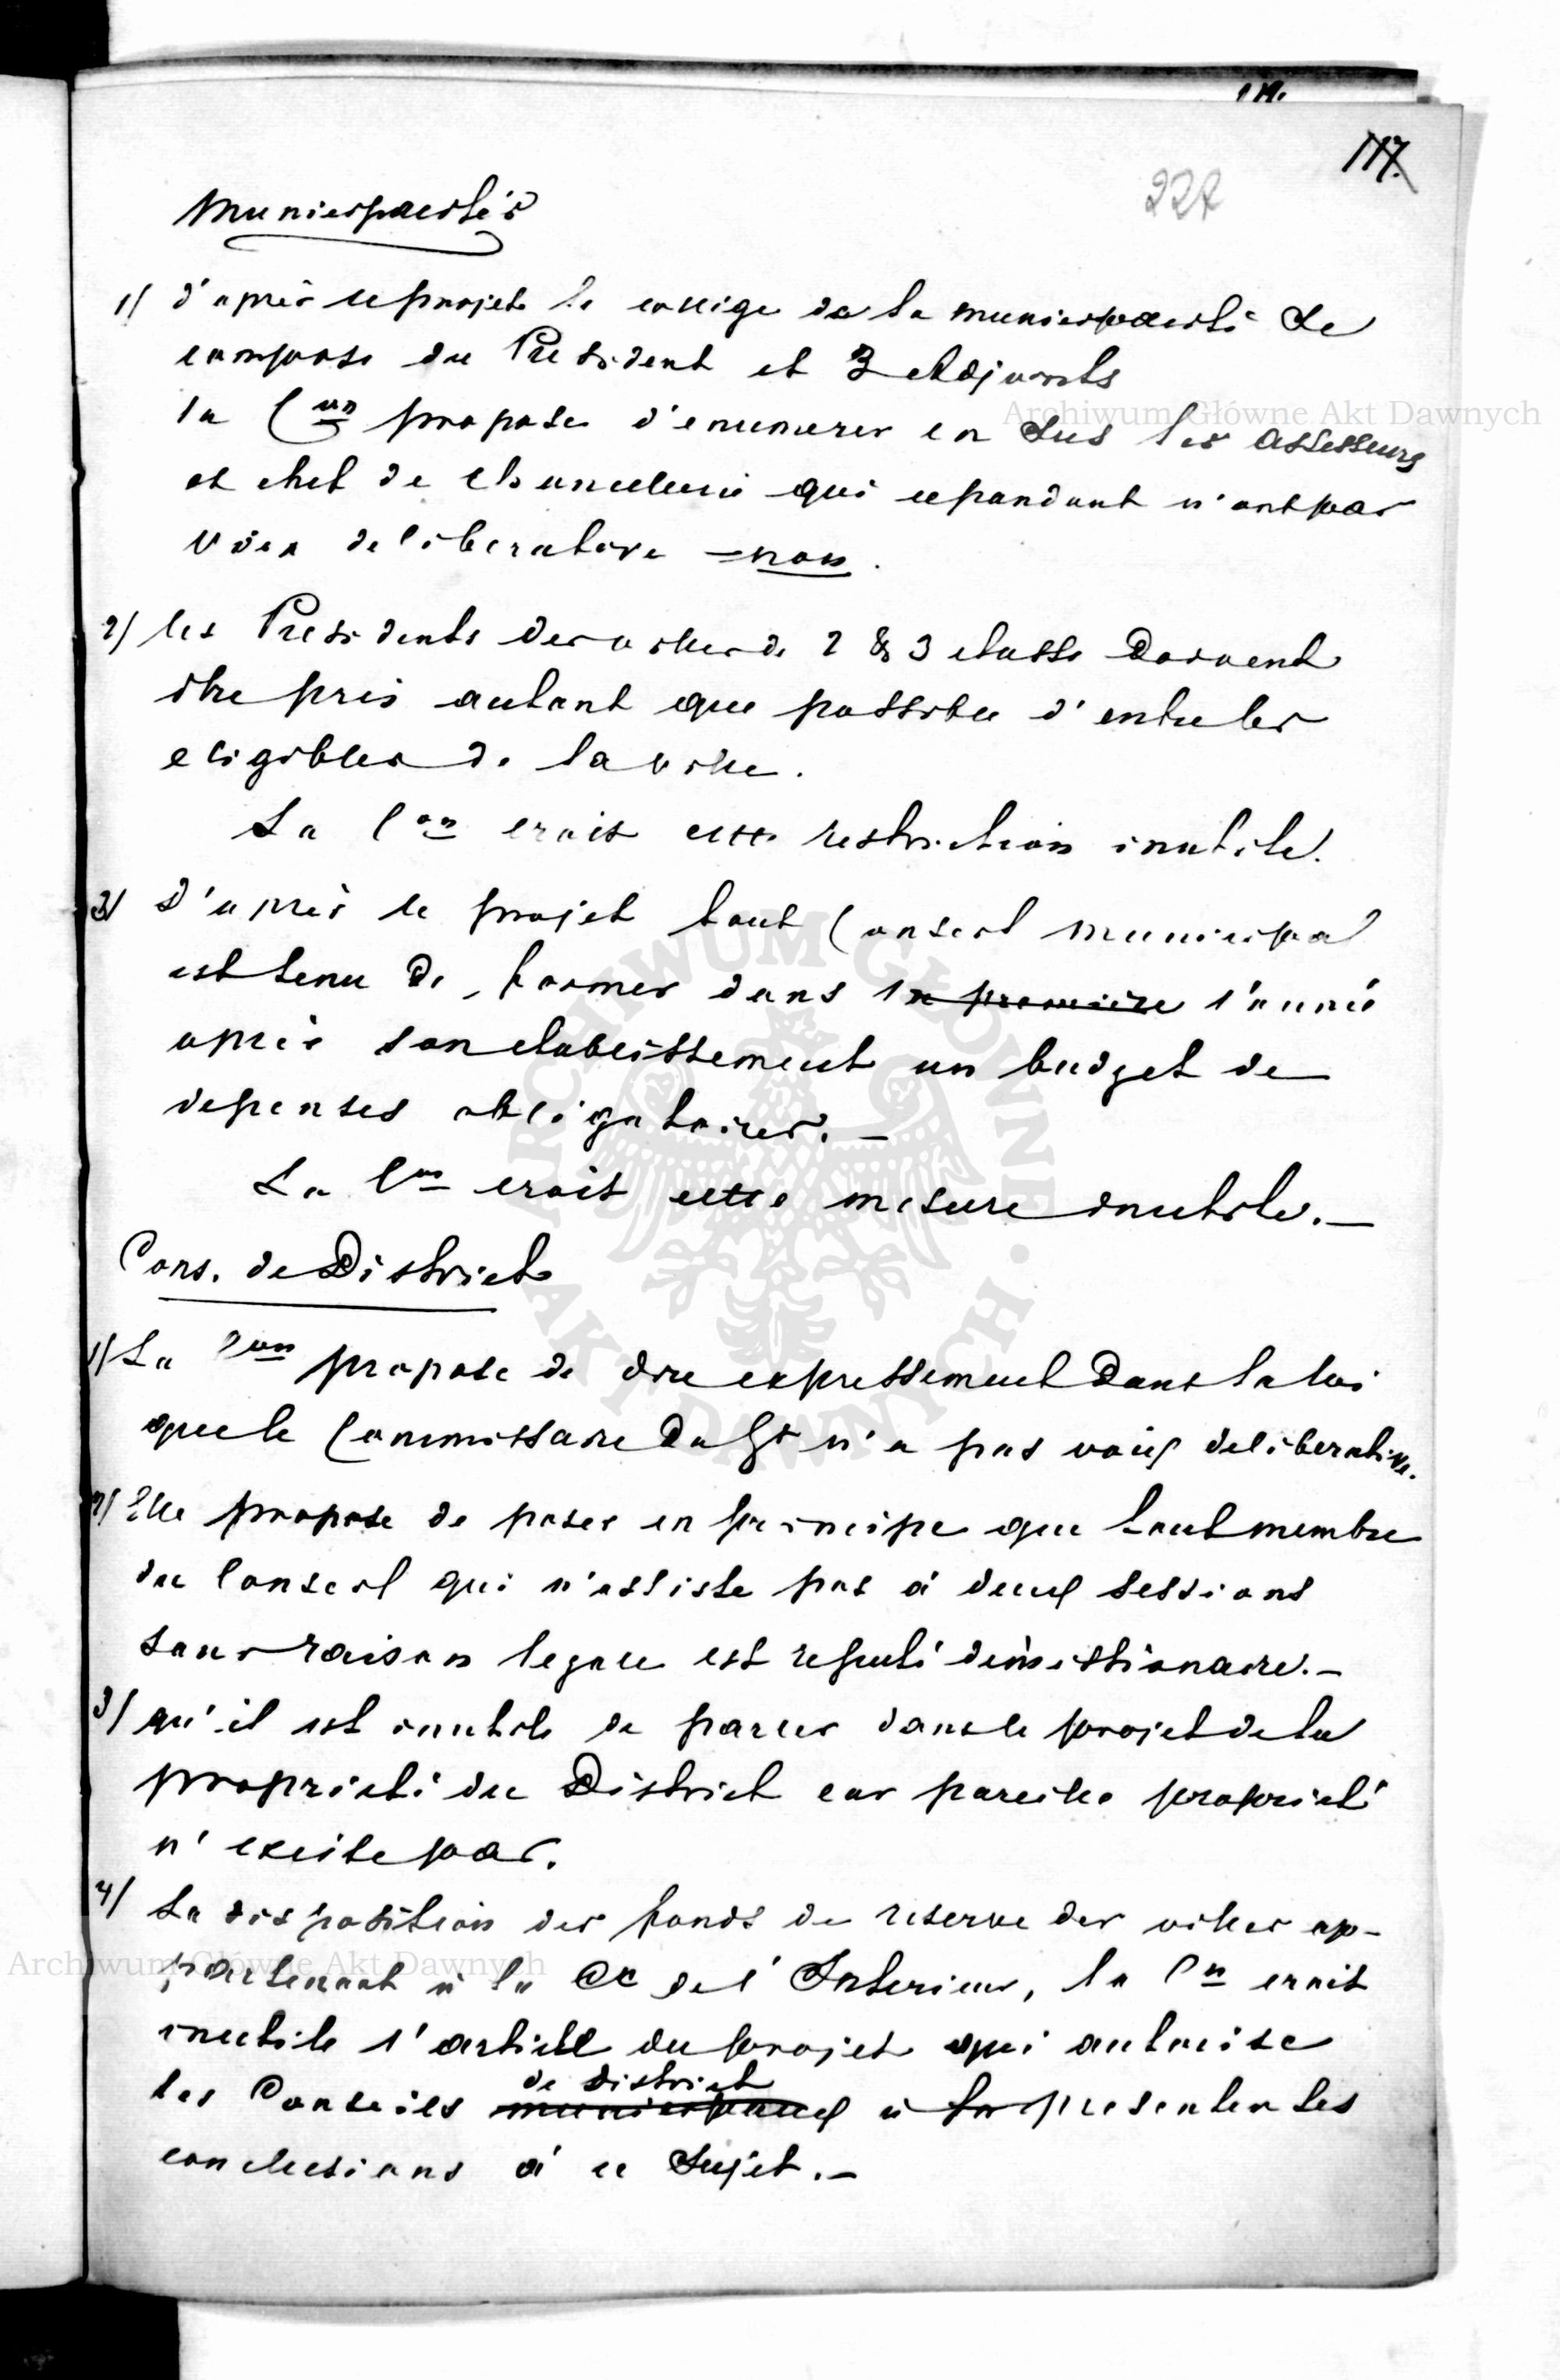 119.
117.
227
Municipalités
1/ d'après le projet le college de la municipalité se
compose du President et 3 Adjoints
la Con propose d'enumerer en sus les assesseurs
et chef de chancellerie qui cependant n'ont pas
voix deliberative = non.
2/ les Presidents des villes de 2 & 3 classe doivent
être pris autant que possible d'entre les
eligibles de la ville.
La Con croit cette restriction inutile.
3/ d'après le projet tout Conseil municipal
est tenu de former dans la première l'année
après son etablissement un budget de
depenses obligatoires. —
La Con croit cette mesure inutile. —
Cons. de District
1/ La Con propose de dire expressement dans la loi
que le Commissaire du Gt n'a pas voix deliberative.
2/ Elle propose de poser en principe que tout membre
du Conseil qui n'assiste pas à deux sessions
sans raison legale est reputé démissionaire. —
3/ qu'il est inutile de parler dans le projet de la
propriété du District car pareille propriété
n'existe pas.
4/ La disposition des fonds de reserve des villes ap-
partenant à la Cc de l'Interieur, la Cn croit
inutile l'article du projet qui autorise
de District
les Conseils municipaux à la presenter les
conclusions à ce sujet. —
Archiwum Główne Akt Dawnych
ARCHIWUM GŁÓWNE AKT DAWNYCH
Archiwum Główne Akt Dawnych